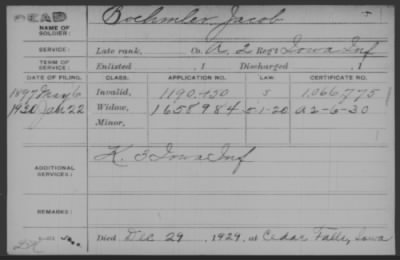 DEAD
NAME OF SOLDIER: Boehmler, Jacob
SERVICE: Late rank, Co. A, 2 Regt Iowa Inf
TERM OF SERVICE: Enlisted , 1 Discharged , 1
DATE OF FILING. CLASS. APPLICATION NO. LAW. CERTIFICATE NO.
1897 May 6 Invalid, 1190450 1,066,775
1930 Jan 22 Widow, 1658984 5-1-20 A2-6-30
Minor,
ADDITIONAL SERVICES: K. 3 Iowa Inf
REMARKS:
Died Dec 29, 1929, at Cedar Falls, Iowa